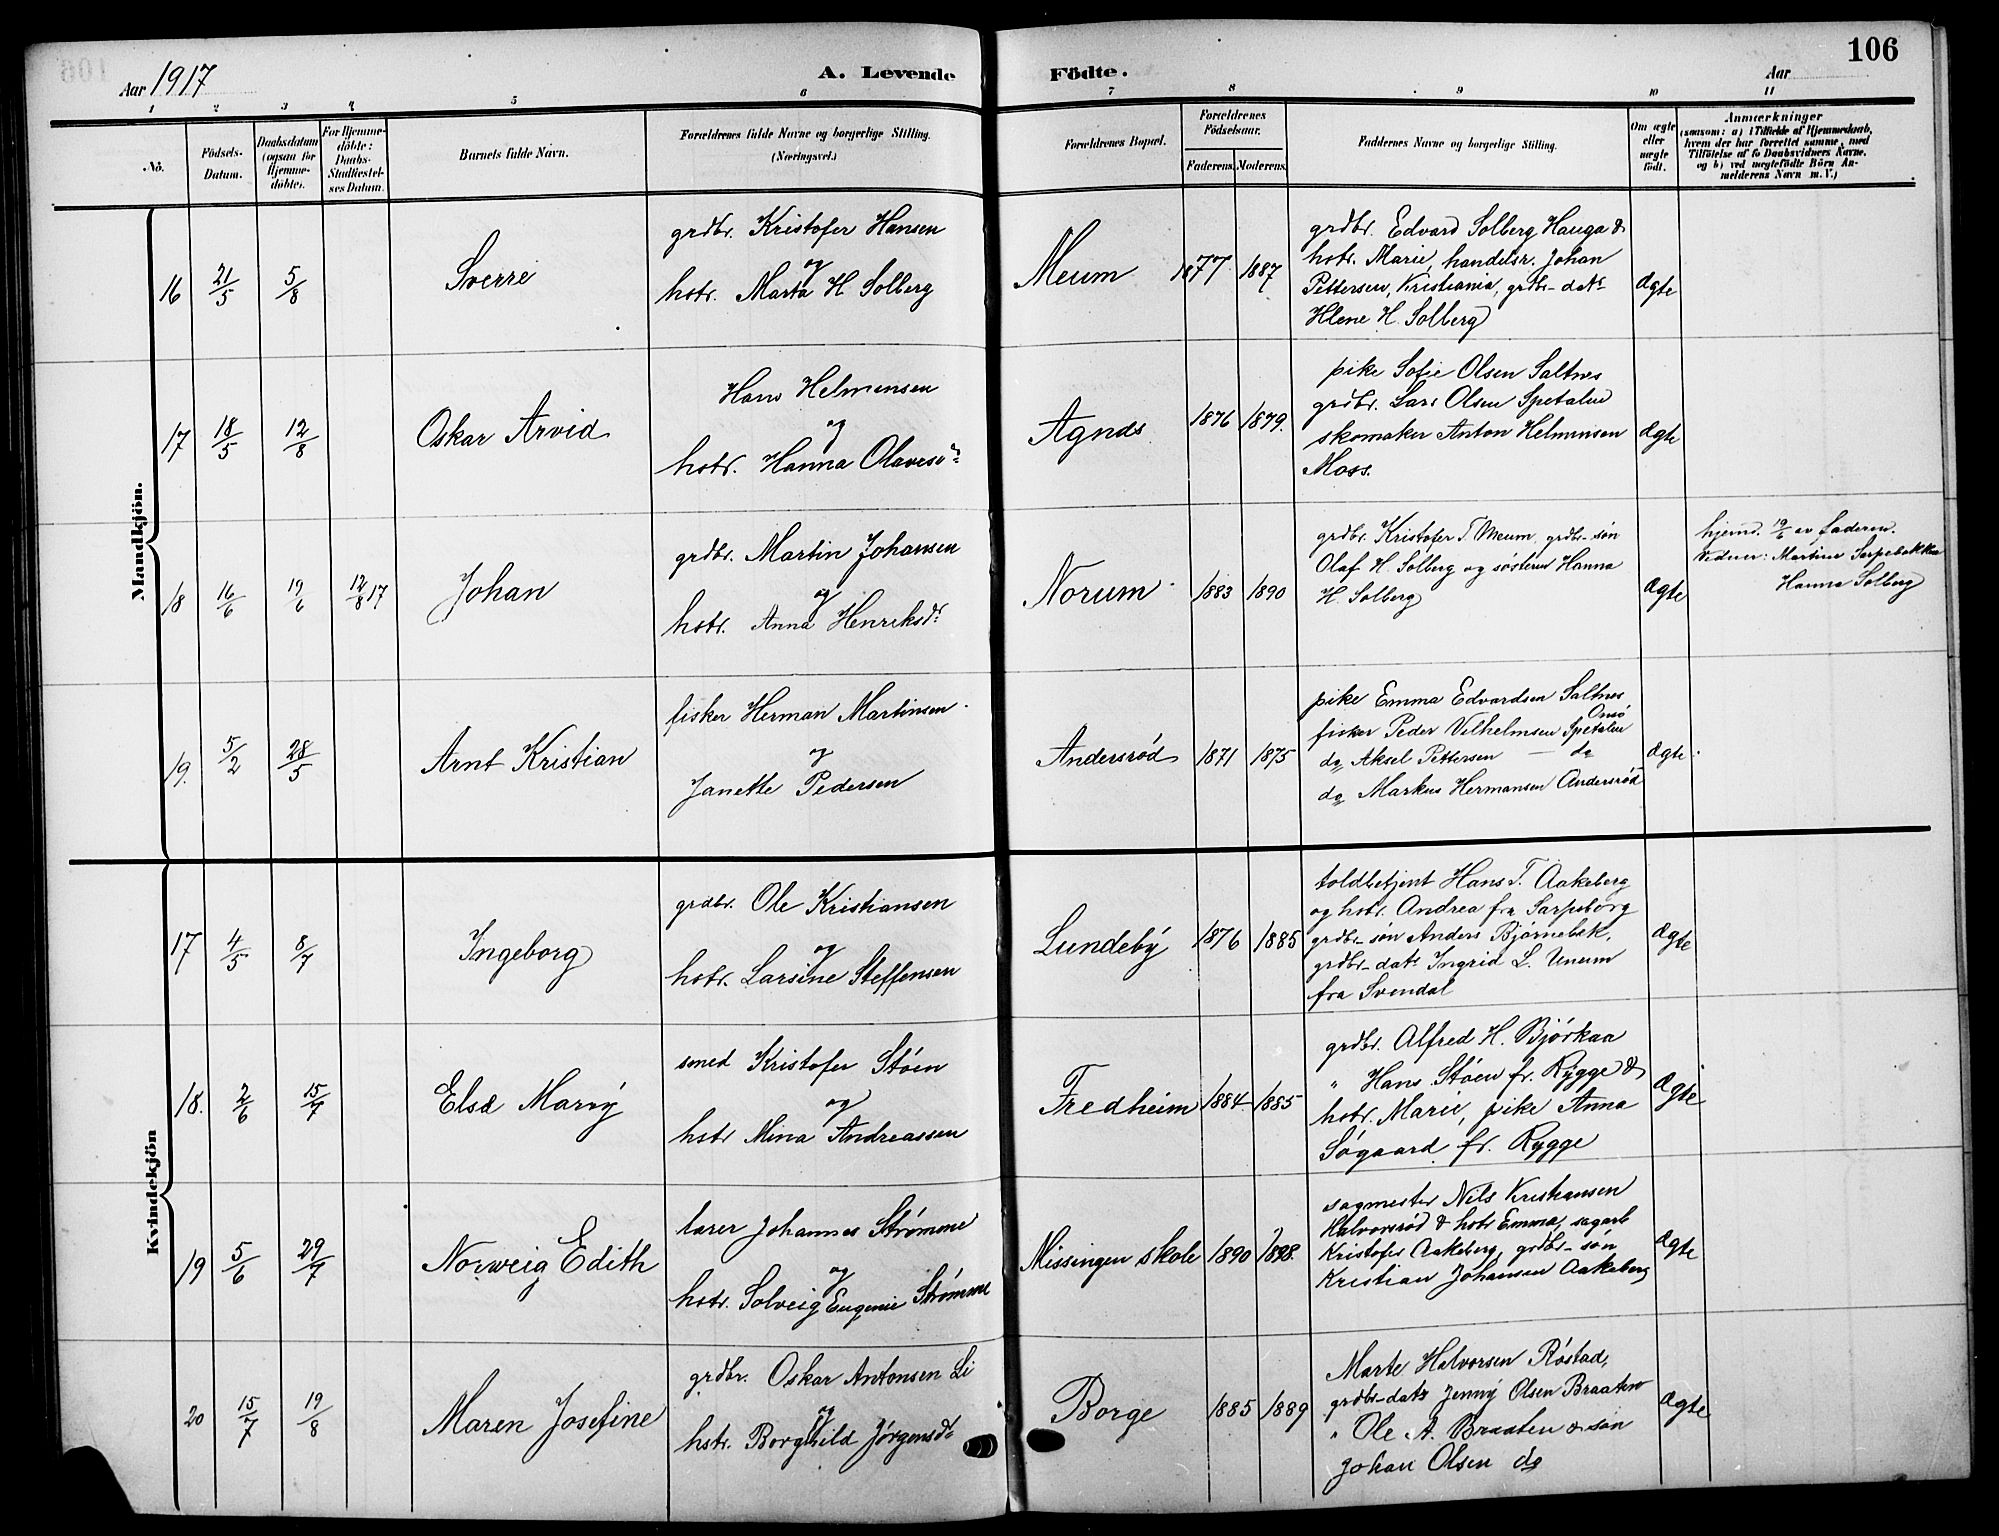 106
Aar 1917
A. Levende Födte.
Aar
1 2 3 4 5 6 7 8 9 10 11
No.
Födsels-
Datum.
Daabsdatum
(ogsaa for
Hjemme-
döbte).
For Hjemme-
döbte:
Daabs-
Stadfæstel-
ses Datum.
Barnets fulde Navn.
Forældrenes fulde Navne og borgerlige Stilling.
(Næringsvei.)
Forældrenes Bopæl.
Forældrenes
Födselsaar.
Faderens. Moderens.
Faddernes Navne og borgerlige Stilling.
Om ægte
eller
uægte
født.
Anmærkninger
(saasom: a) i Tilfælde af Hjemmedaab,
hvem der har forrettet samme, med
Tilföielse af to Daabsvidners Navne,
og b) ved uegtefödte Börn An-
melderens Navn m. V.)
Mandkjön.
16 21/5 5/8 Sverre
grdbr. Kristofer Hansen
og
hstr. Marta H Solberg
Meum 1877 1887
grdbr. Edvard Solberg Hauga &
hstr. Marie, handelsr. Johan
Pettersen, Kristiania, grdbr-datr
Hlene H. Solberg
ægte
17 18/5 12/8 Oskar Arvid
Hans Helmensen
og
hstr. Hanna Olavesdr
Agnes 1876 1879.
pike Sofie Olsen Saltnes
grdbr. Lars Olsen Spetalen
skomaker Anton Helmensen
Moss.
ægte
18 16/6 19/6 12/8 17 Johan
grdbr. Martin Johansen
og
hstr. Anna Henriksdr
Norum 1883 1890
grdbr. Kristofer T. Meum, grdbr-søn
Olaf H. Solberg og søsteren Hanna
H. Solberg
ægte
hjemd. 19/6 av faderen.
Vidner: Martin Sarpebakken
Hanna Solberg
19. 5/2 28/5 Arnt Kristian
fisker Herman Martinsen
og
Janette Pedersen
Andersrød 1871 1875
pike Emma Edvardsen Saltnes
Onsö
fisker Peder Vilhelmsen Spetalen
do Aksel Pettersen — do
do Markus Hermansen Andersrød
ægte
Kvindekjön
17 4/5 8/7 Ingeborg
grdbr. Ole Kristiansen
og
hstr. Larsine Steffensen
Lundeby 1876 1885
toldbetjent Hans T. Aakeberg
og hstr. Andrea fra Sarpsborg
grdbr-søn Anders Bjørnebek,
grdbr-datr Ingrid L. Unum
fra Svendal
ægte
18. 2/6 15/7 Else Mary
smed Kristofer Støen
og
hstr Mina Andreassen
Fredheim 1884 1885
grdbr. Alfred H. Bjørkaa
" Hans Støen fr. Rygge &
hstr. Marie, pike Anna
Søgaard fr. Rygge
ægte
19 5/6 29/7 Norveig Edith
lærer Johannes Strømme
og
hstr. Solveig Eugenie Strømme
Missingen skole 1890 1898.
sagmester Nils Kristiansen
Halvorsrød & hstr Emma, sagarb
Kristofer Aakeberg, grdbr-søn
Kristian Johansen Aakeberg
ægte
20 15/7 19/8 Maren Josefine
grdbr. Oskar Antonsen Li
og
hstr. Borghild Jørgensdr
Borge 1885 1889
Marte Halvorsen Røstad,
grdbr-datr Jenny Olsen Braaten
" Ole A. Braaten & søn
Johan Olsen do
ægte